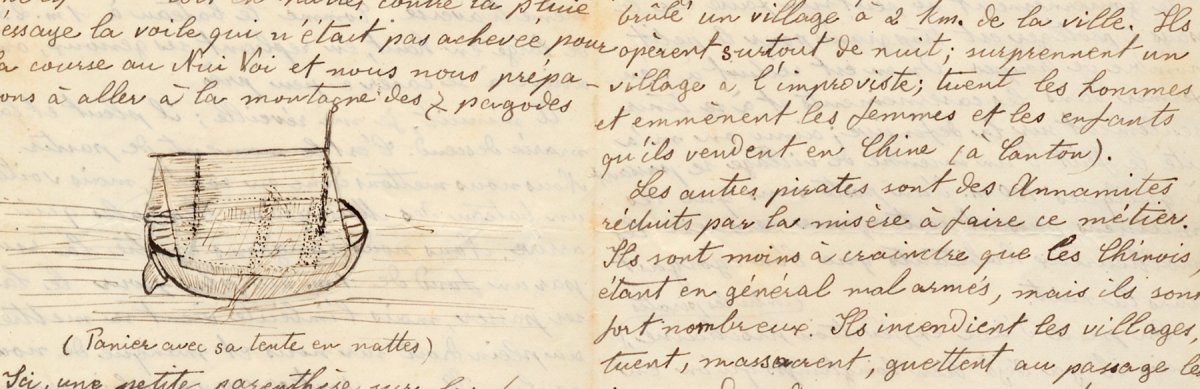 en nattes contre la pluie
essaye la voile qui n'était pas achevée pour
la course au Nui Voi et nous nous prépa-
ons à aller à la montagne des 7 pagodes
(Panier avec sa tente en nattes)
Ici, une petite parenthèse sur
brûlé un village à 2 km. de la ville. Ils
opèrent surtout de nuit ; surprennent un
village à l'improviste ; tuent les hommes
et emmènent les femmes et les enfants
qu'ils vendent en Chine (à Canton).
Les autres pirates sont des Annamites
réduits par la misère à faire ce métier.
Ils sont moins à craindre que les Chinois
étant en général mal armés, mais ils sont
fort nombreux. Ils incendient les villages,
tuent, massacrent, guettent au passage le